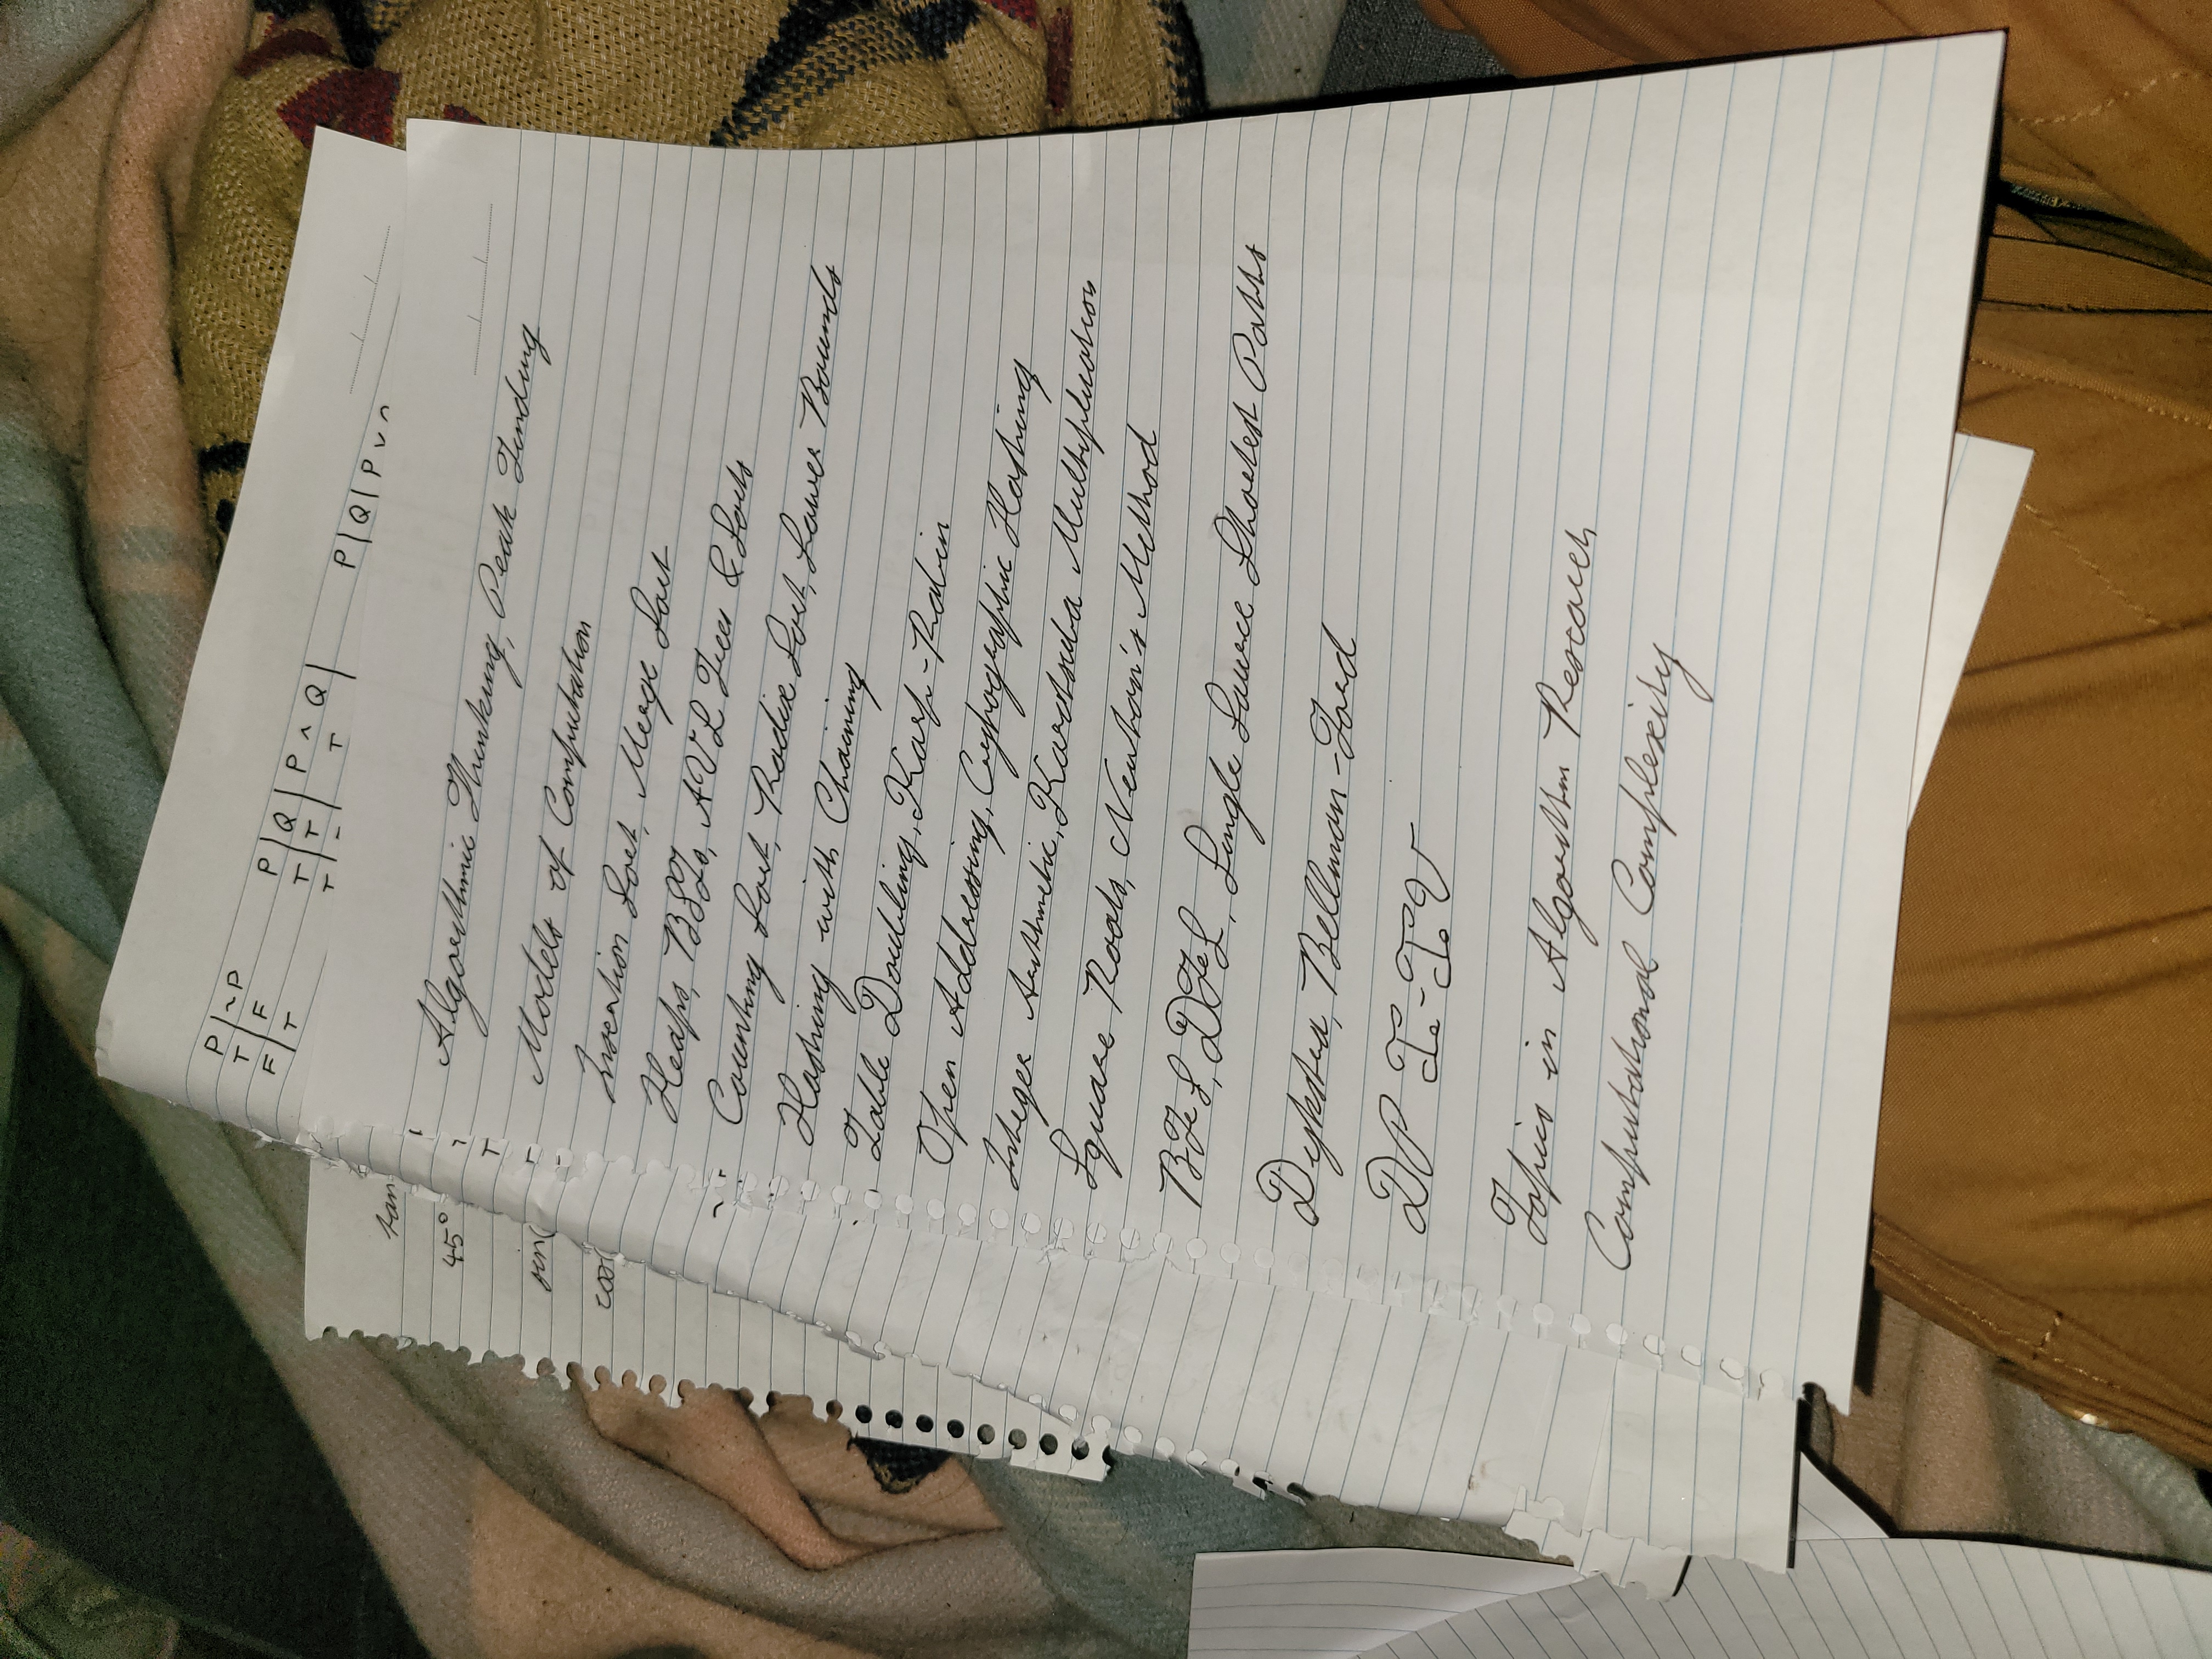 P ~P
T F
F T
P Q P ∧ Q
T T T
T
P Q P ∨
tan
45°
sin(
cos(
Algorithmic Thinking, Peak Finding
Models of Computation
Insertion Sort, Merge Sort
Heaps, BSTs, AVL Trees & Sorts
Counting Sort, Radix Sort, Lower Bounds
Hashing with Chaining
Table Doubling, Karp-Rabin
Open Addressing, Cryptographic Hashing
Integer Arithmetic, Karatsuba Multiplication
Square Roots, Newton's Method
BFS, DFS, Single Source Shortest Paths
Dijkstra, Bellman-Ford
DP I-IV
Topics in Algorithm Research
Computational Complexity